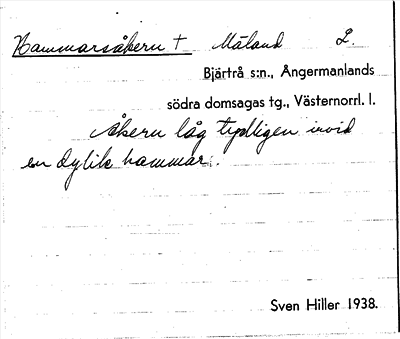 Hammarsåkern † Måland L
Bjärtrå s:n., Ångermanlands
södra domsagas tg., Västernorrl. l.
Åkern låg tydligen invid
en dylik hammar.
Sven Hiller 1938.